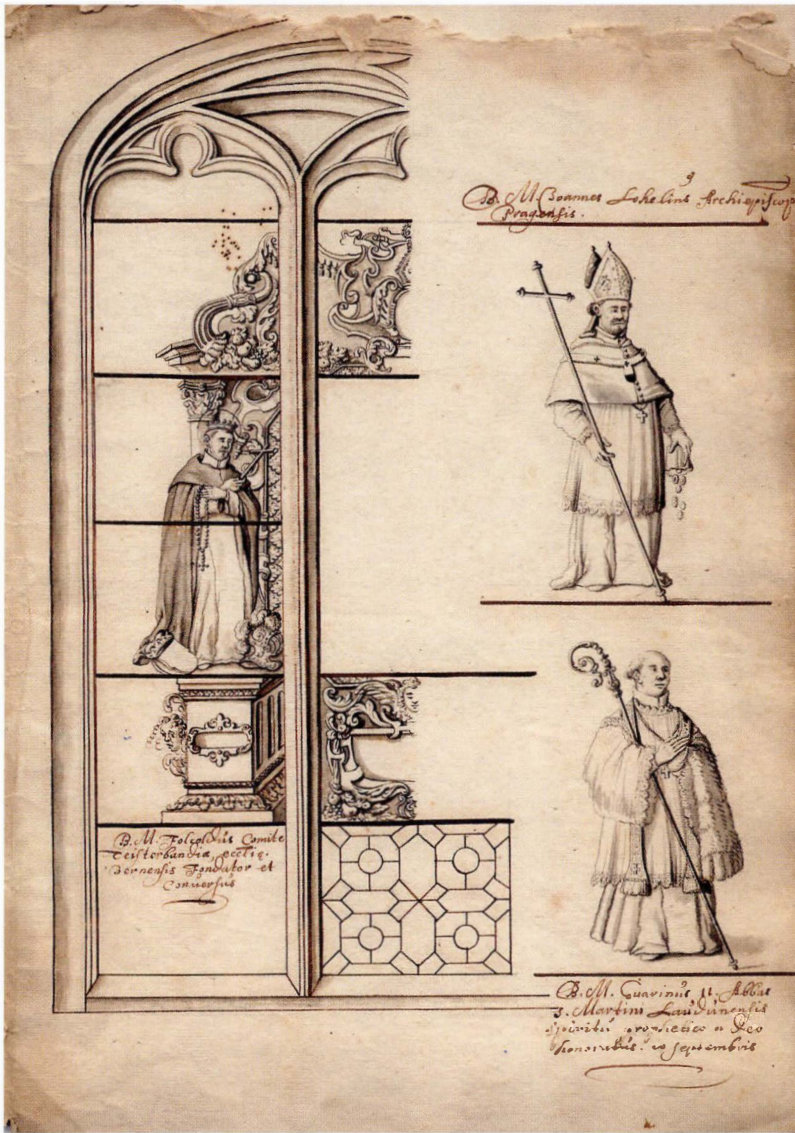 B. M. Joannes Lohelius Archiepiscop
Pragensis.
B. M. Folcoldus Comite
Teisterbandiæ eccliæ.
Bernensis Fondator et
Conversus
B. M. Guarinus 11. Abbas
S. Martini Laudunensis
spiritu prophetico a Deo
honoratus. septembris